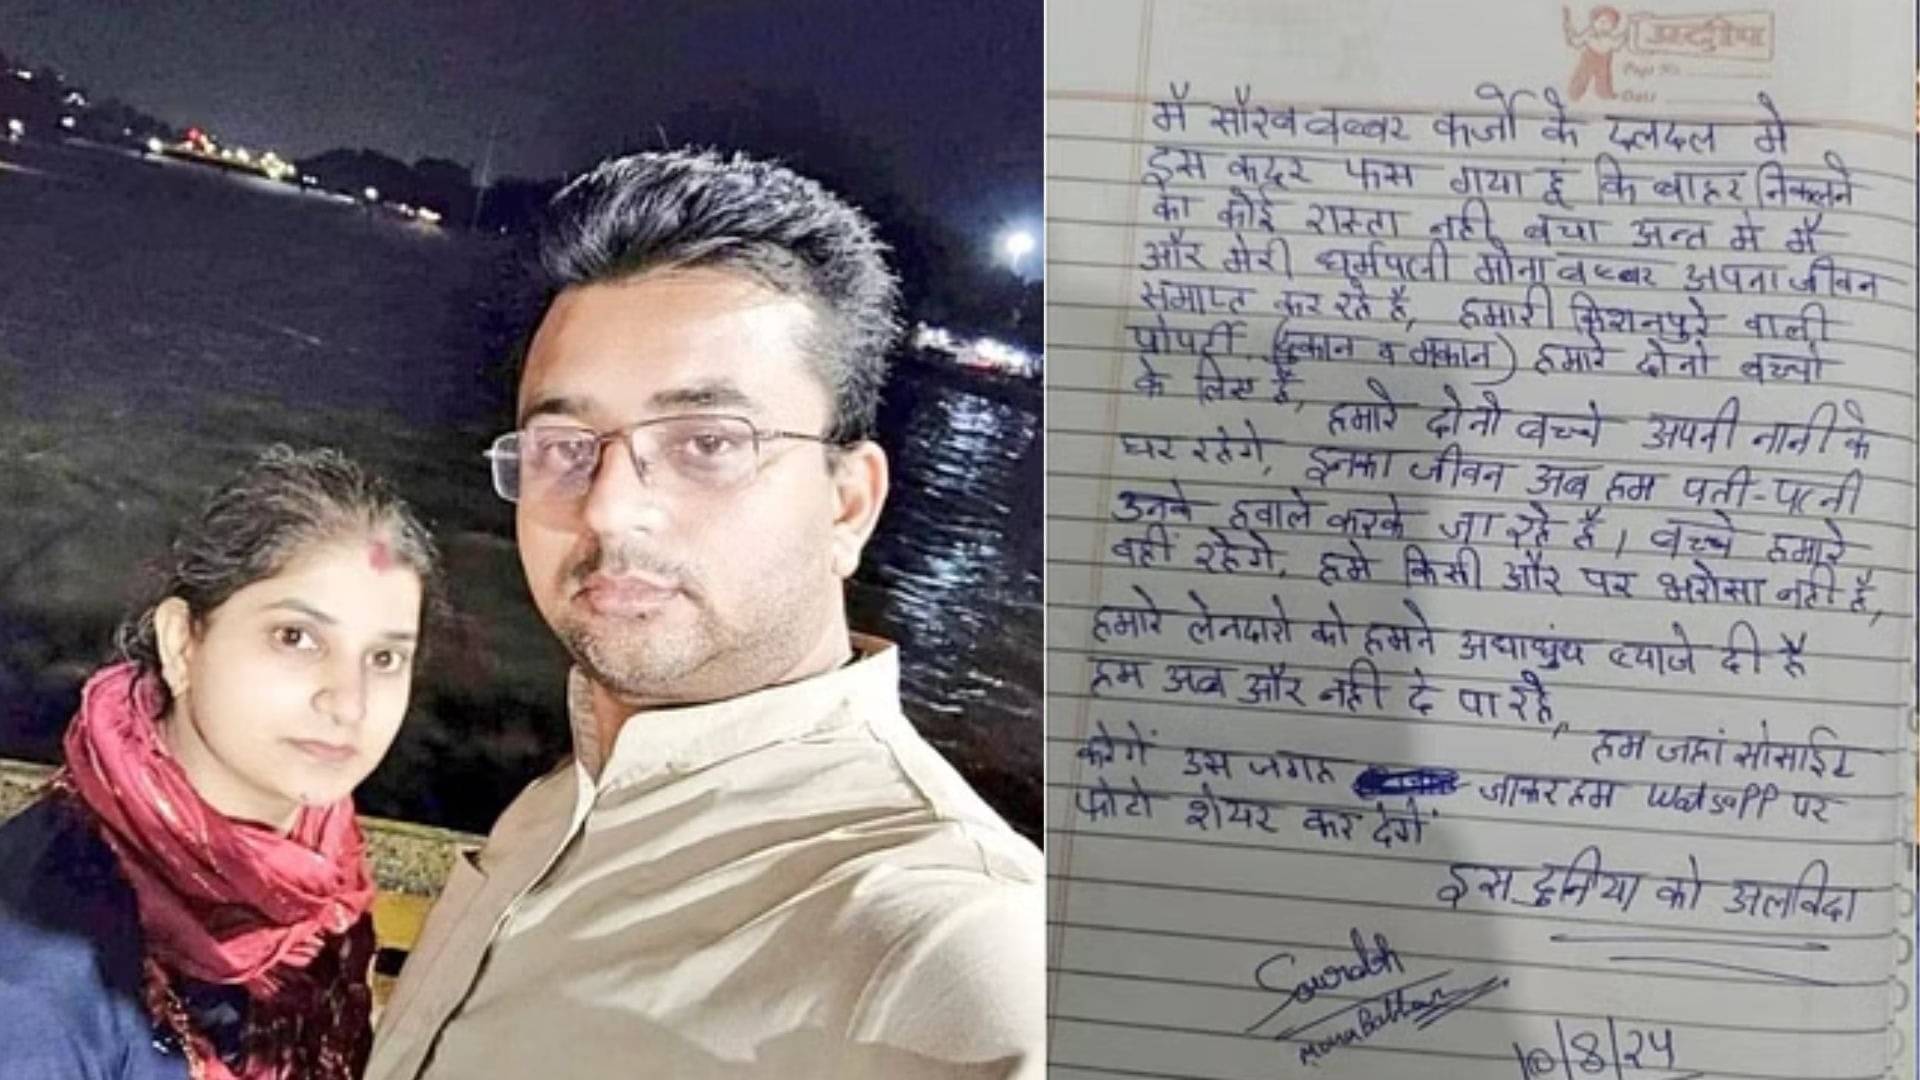 प्रदीप
Page No.
Date
मैं सौरव बब्बर कर्जो के दलदल मे
इस कदर फस गया हूं कि बाहर निकलने
का कोई रास्ता नही बचा अन्त मे मैं
और मेरी धर्मपत्नी मोना बब्बर अपना जीवन
समाप्त कर रहे है, हमारी किशनपुरे वाली
प्रोपर्टी (दुकान व मकान) हमारे दोनो बच्चो
के लिए है,
हमारे दोनो बच्चे अपनी नानी के
घर रहेगे, इनका जीवन अब हम पती-पत्नी
उनके हवाले करके जा रहे है। बच्चे हमारे
वहीं रहेगे, हमे किसी और पर भरोसा नही है,
हमारे लेनदारो को हमने अंधाधुंध ब्याजे दी है
हम अब और नही दे पा रहे,
हम जहां सोसाईट
करेगें उस जगह जाकर हम Watsapp पर
फोटो शेयर कर देगें
इस दुनिया को अलविदा
Sourabh
Mona Babbar
10/8/24